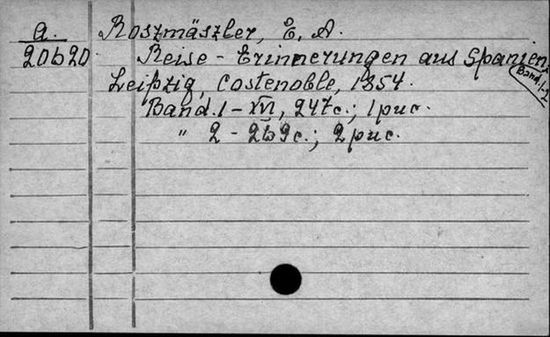 a. Roszmäszler, E. A.
20620 Reise-Erinnerungen aus Spanien.
Band.1-2
Leipzig, Costenoble, 1854.
Band.1 - XVI, 247c.; 1рис.
" 2 - 269c.; 2рис.